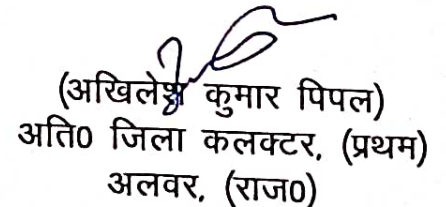 (अखिलेश कुमार पिपल)
अति0 जिला कलक्टर, (प्रथम)
अलवर, (राज0)